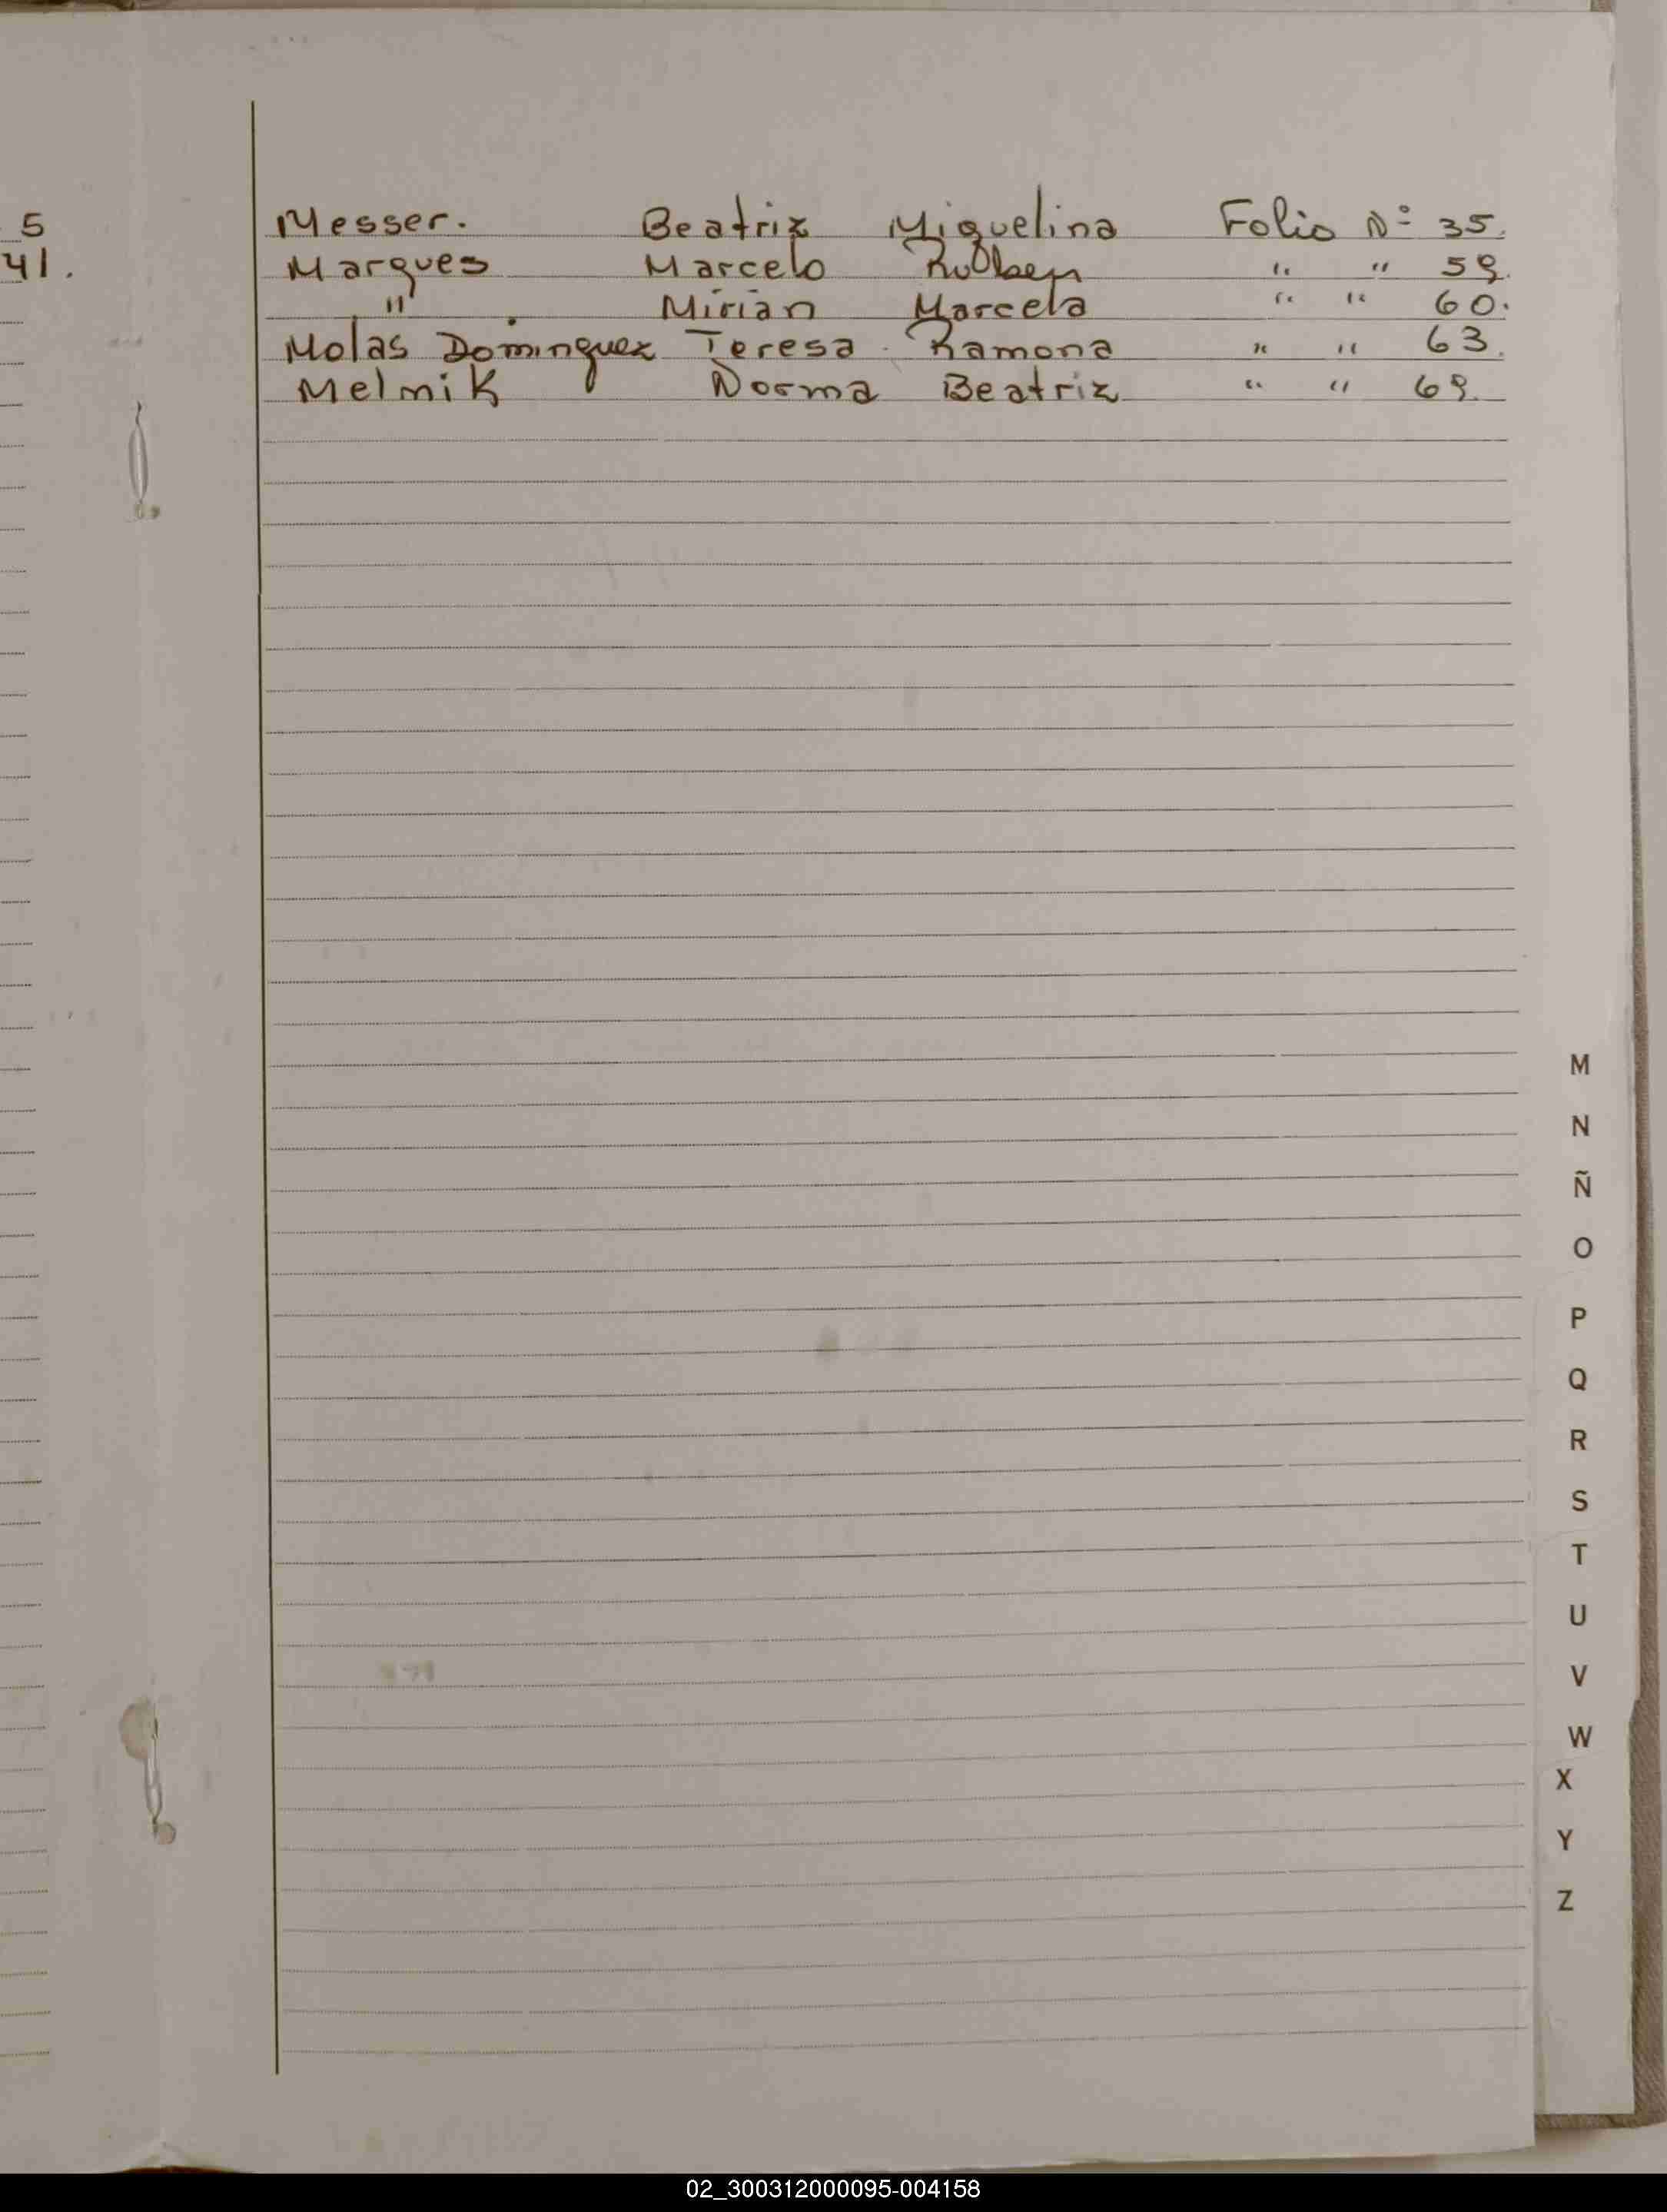 5
41.
Messer. Beatriz Miguelina Folio Nº 35.
Marques Marcelo Rubben " " 59.
" Mirian Marcela " " 60.
Molas Dominguez Teresa Ramona " " 63.
Melmik Norma Beatriz " " 69.
M
N
Ñ
O
P
Q
R
S
T
U
V
W
X
Y
Z
02_300312000095-004158